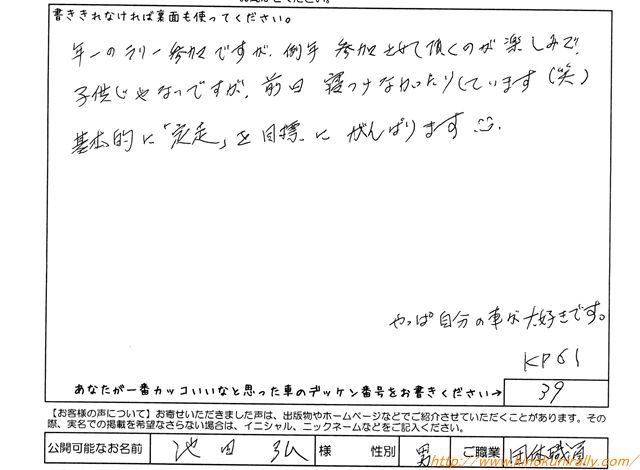 書ききれなければ裏面も使ってください。
年一のラリー参加ですが、例年 参加させて頂くのが楽しみで、
子供じゃないですが、前日 寝つけなかったりしています(笑)
基本的に「完走」を目標に がんばります
やっぱ自分の車が大好きです。
KP61
あなたが一番カッコいいなと思った車のデッケン番号をお書きください→ 39
【お客様の声について】お寄せいただきました声は、出版物やホームページなどでご紹介させていただくことがあります。その
際、実名での掲載を希望なさらない場合は、イニシャル、ニックネームなどをご記入ください。
公開可能なお名前 池田 弘 様 性別 男 ご職業 団体職員
http://www.kinokunirally.com/